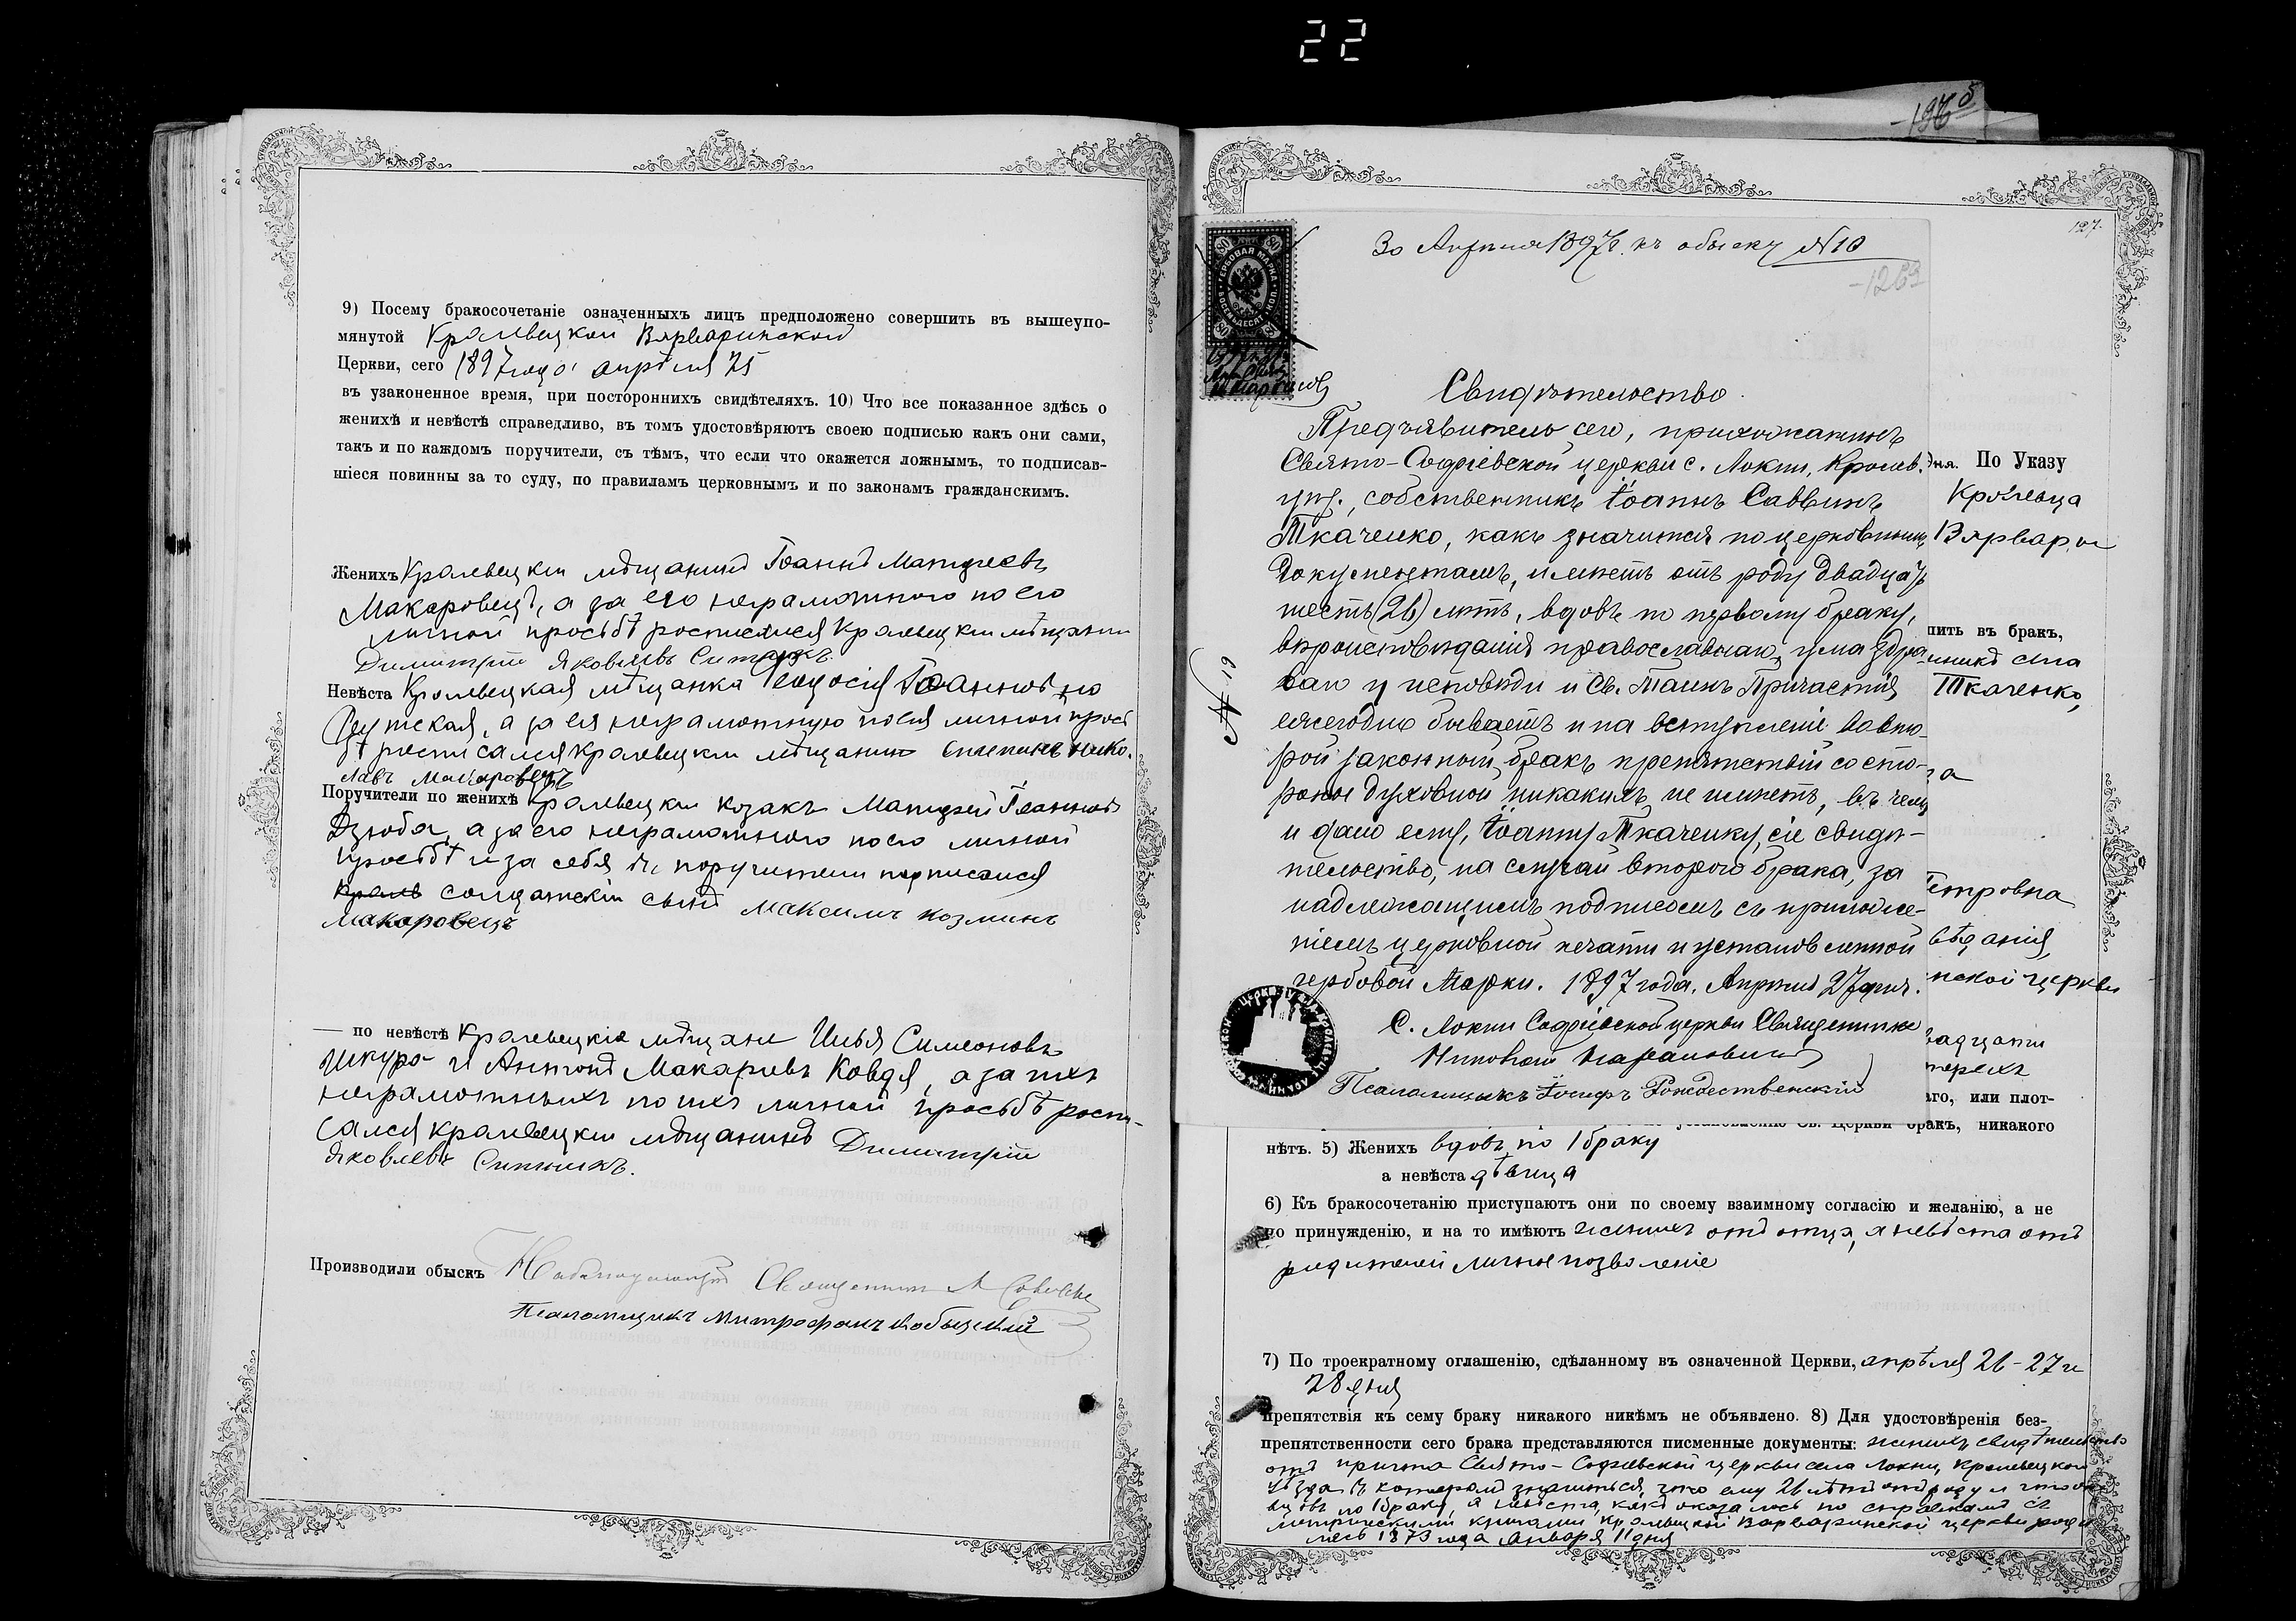 22
9) Посему бракосочетаніе означенныхъ лицъ предположено совершить въ вышеупо-
мянутой Кролевецкой Варваринской
Церкви, сего 1897 года апрѣля 25
въ узаконенное время, при постороннихъ свидѣтеляхъ. 10) Что все показанное здѣсь о
женихѣ и невѣстѣ справедливо, въ томъ удостовѣряютъ своею подписью какъ они сами,
такъ и по каждомъ поручители, съ тѣмъ, что если что окажется ложнымъ, то подписав-
шіеся повинны за то суду, по правиламъ церковнымъ и по законамъ гражданскимъ.
Женихъ Кролевецкій мѣщанинъ Іоаннъ Матѳеевъ
Макаровецъ, а за его неграмотного по его
личной просьбѣ росписался Кролевецкій мѣщанин
Димитрій Яковлевъ
Невѣста Кролевецкая мѣщанка Ѳеодосія Іоаннова
а за ея неграмотную по ея личной прось
бѣ росписался кролевецкій мѣщанинъ Стефанъ Нико.
лаевъ Макаровецъ
Поручители по женихѣ кролевецкій козакъ Матѳей Іоанновъ
Дзюба, а за его неграмотного по его личной
просьбѣ и за себя въ поручители подписался
солдатскій сынъ Максимъ Козминъ
Макаровецъ
— по невѣстѣ Кролевецкіе мѣщане Илья Симеоновъ
Шкура и Антонъ Макаріевъ Ковдя, а за ихъ
неграмотныхъ по ихъ личной просьбѣ роспи-
сался кролевецкій мѣщанинъ Димитрій
Яковлевъ
Производили обыскъ Священникъ
Псаломщикъ Митрофанъ
127.
30 Апрѣля 1897 г. къ обыску №10
-1263
80 80
ГЕРБОВАЯ МАРКА
ВОСЕМЬДЕСЯТЪ КОП.
80 80
Свидѣтельство.
Предъявитель сего, прихожанинъ
Свято-Софіевской церкви с. Локни, Кролев.
уѣз., собственникъ Іоаннъ Саввинъ
Ткаченко, какъ значится по церковнымъ
документамъ, имѣетъ отъ роду двадцать
шесть (26) лѣтъ, вдовъ по первому браку,
вѣроисповѣданія православнаго, ума здра
ваго у исповѣди и Св. Таинъ Причастія
ежегодно бываетъ и на вступленіе во вто-
рой законный бракъ препятствій со сто-
роны духовной никакихъ не имѣетъ, въ чемъ
и дано ему, Іоанну Ткаченку, сіе свидѣ-
тельство, на случай второго брака, за
надлежащимъ подписомъ съ приложе-
ніемъ церковной печати и установленной
гербовой Марки. 1897 года, Апрѣля 27 дня.
С. Локни Софіевской церкви Священникъ
Николай
Псаломщикъ Іосифъ Рождественскій
№ 19
дня. По Указу
Кролевца
Варвар
пить въ бракъ,
села
Ткаченко,
етровна
вѣданія,
нской церкви
вадцати
аго, или плот-
Церкви бракъ, никакого
нѣтъ. 5) Женихъ вдовъ по 1 браку
а невѣста дѣвица
6) Къ бракосочетанію приступаютъ они по своему взаимному согласію и желанію, а не
по принужденію, и на то имѣютъ женихъ отъ отца, а невѣста отъ
родителей личное позволеніе
7) По троекратному оглашенію, сдѣланному въ означенной Церкви, апрѣля 26 - 27 и
28 дня
препятствія къ сему браку никакого никѣмъ не объявлено. 8) Для удостовѣренія без-
препятственности сего брака представляются писменные документы: женихъ свидѣтельство
отъ причта Свято-Софіевской церкви села Локни, Кролевецкого
уѣзда въ которомъ значиться, что ему 26 лѣтъ отъ роду и что онъ
вдовъ по 1 браку, а невѣста, какъ оказалось по справкамъ съ
метрическими книгами Кролевецкой Варваринской церкви роди
лась 1873 года Января 11 дня